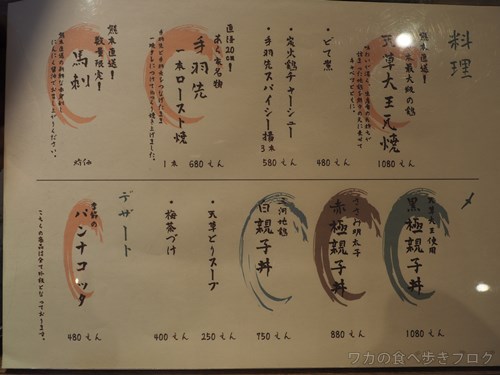 料理
熊本直送!
日本最大級の鶏
天草大王瓦焼
1080 えん
・どて煮
480 えん
・炭火鶏チャーシュー
・手羽先スパイシー揚
3本
580 えん
直径20cm!
あくま名物
手羽先
一本ロースト焼
1本 680 えん
熊本直送!
数量限定!
馬刺
時価
〆
天草大王使用
黒極親子丼
1080 えん
明太子
赤極親子丼
880 えん
三河地鶏
白親子丼
750 えん
・天草とりスープ
250 えん
・梅茶づけ
400 えん
デザート
季節の
パンナコッタ
480 えん
こちらの商品は全て外税となっております。
ワカの食べ歩きブログ